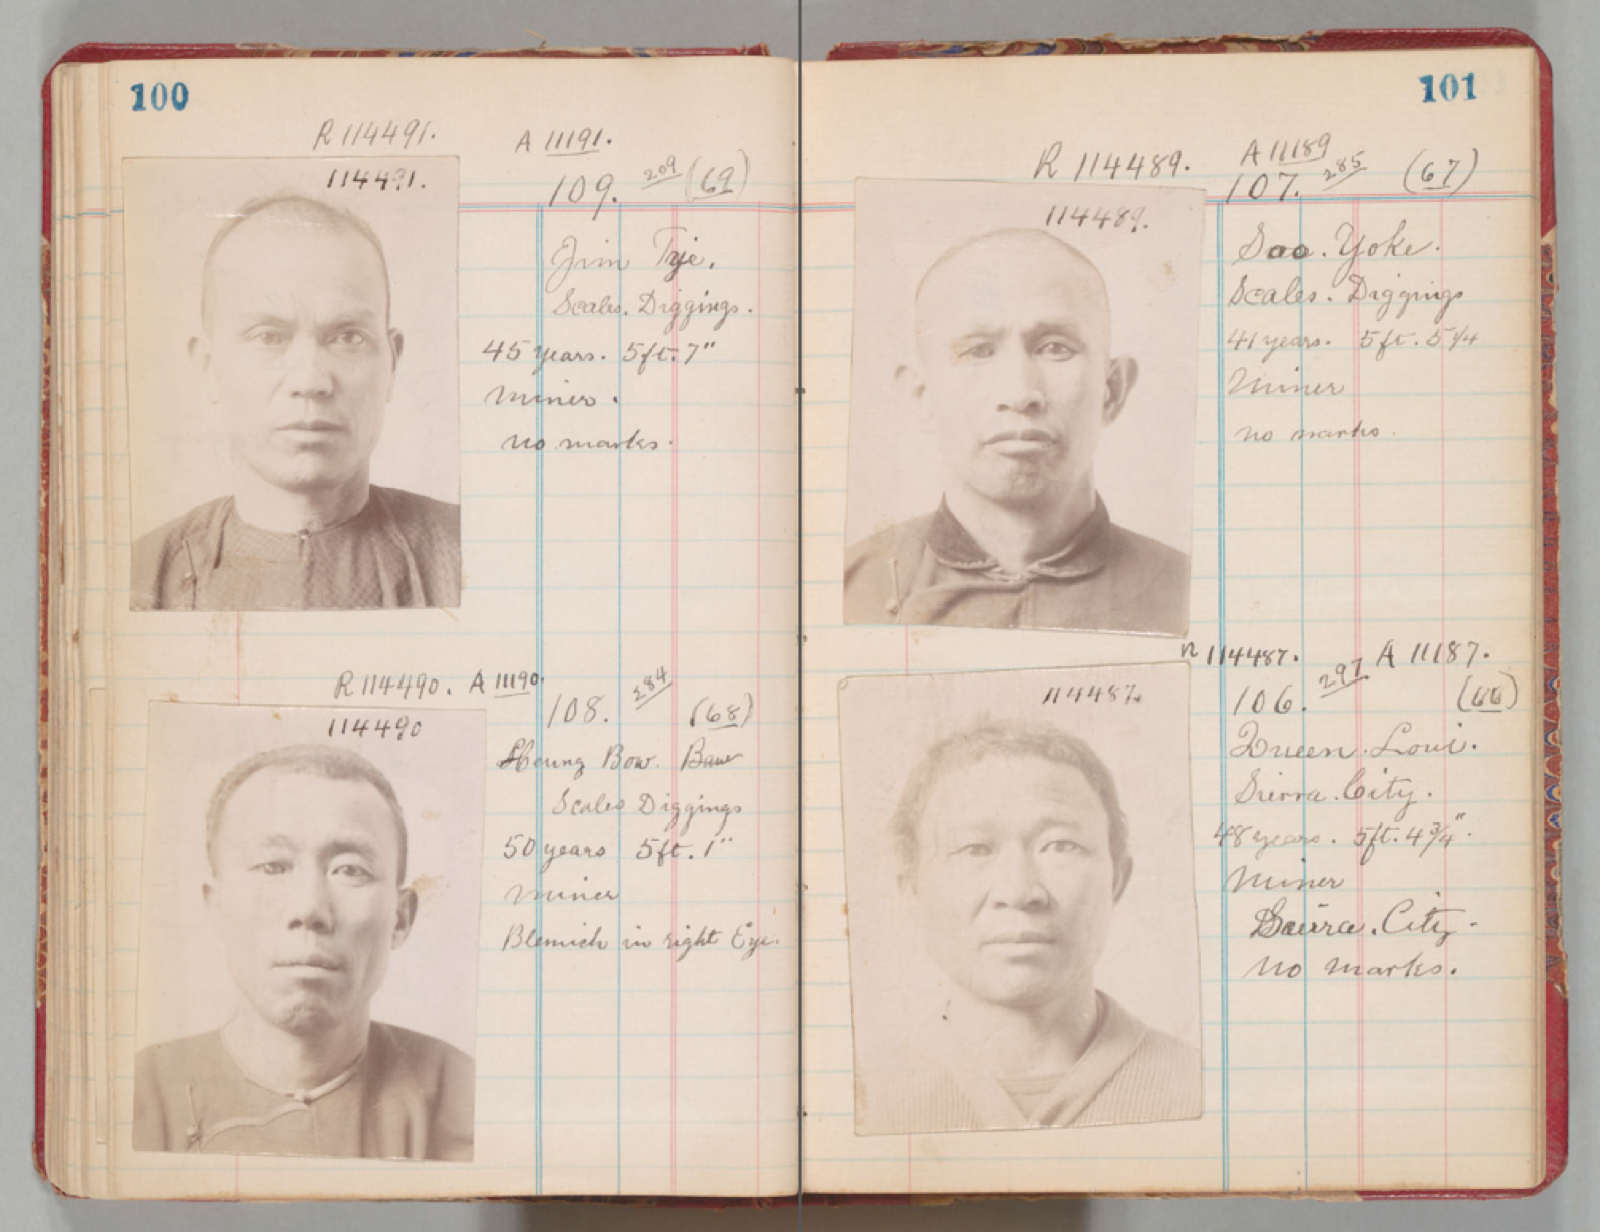 100
R 114491.
A 11191.
114491.
109. 209 (69)
Jim Tye.
Scales. Diggings.
45 years. 5ft. 7"
Miner.
no marks.
R 114490. A 11190.
114490
108. 284 (68)
Heung Bow. Baw
Scales Diggings
50 years 5ft. 1"
Miner
Blemich in right Eye.
101
R 114489.
A 11189
114489.
107. 285 (67)
Soo. Yoke.
Scales. Diggings
41 years. 5ft. 5 1/4
Miner
no marks.
R 114487. A 11187.
114487.
106. 297 (66)
Queen. Loui.
Sierra. City.
48 years. 5ft. 4 3/4".
Miner
City.
no marks.